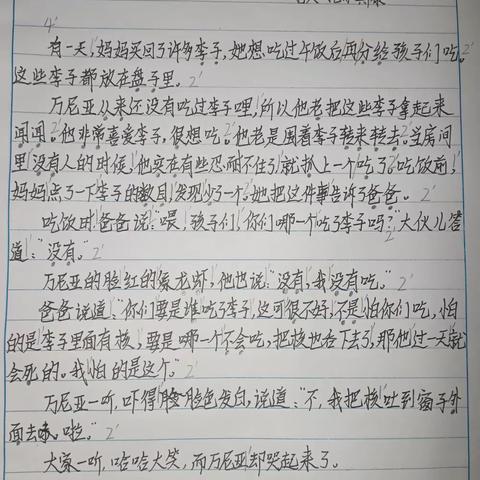 有一天,妈妈买回了许多李子,她想吃过午饭后再分给孩子们吃。2'
这些李子都放在盘子里。2'
万尼亚从来还没有吃过李子哩,所以他老把这些李子拿起来
闻闻。他非常喜爱李子,很想吃。2'他老是围着李子转来转去。2'当房间
里没有人的时候,他实在有些忍耐不住了,就抓上一个吃了。吃饭前,
妈妈点了一下李子的数目,发现少了一个。她把这件事告诉了爸爸。2'
吃饭时,爸爸说:“喂,孩子们,你们哪一个吃了李子吗?2'”大伙儿答
道:“没有。”2'
万尼亚的脸红的像龙虾,他也说:“没有,我没有吃。”2'
爸爸说道:“你们要是谁吃了李子,这可很不好,不是怕你们吃,怕
的是李子里面有核,要是哪一个不会吃,把核也吞下去了,那他过一天就
会死的。我怕的是这个。”2'
万尼亚一听,吓得脸色发白,说道:“不,我把核吐到窗子外
面去啦。”2'
大家一听,哈哈大笑,而万尼亚却哭起来了。